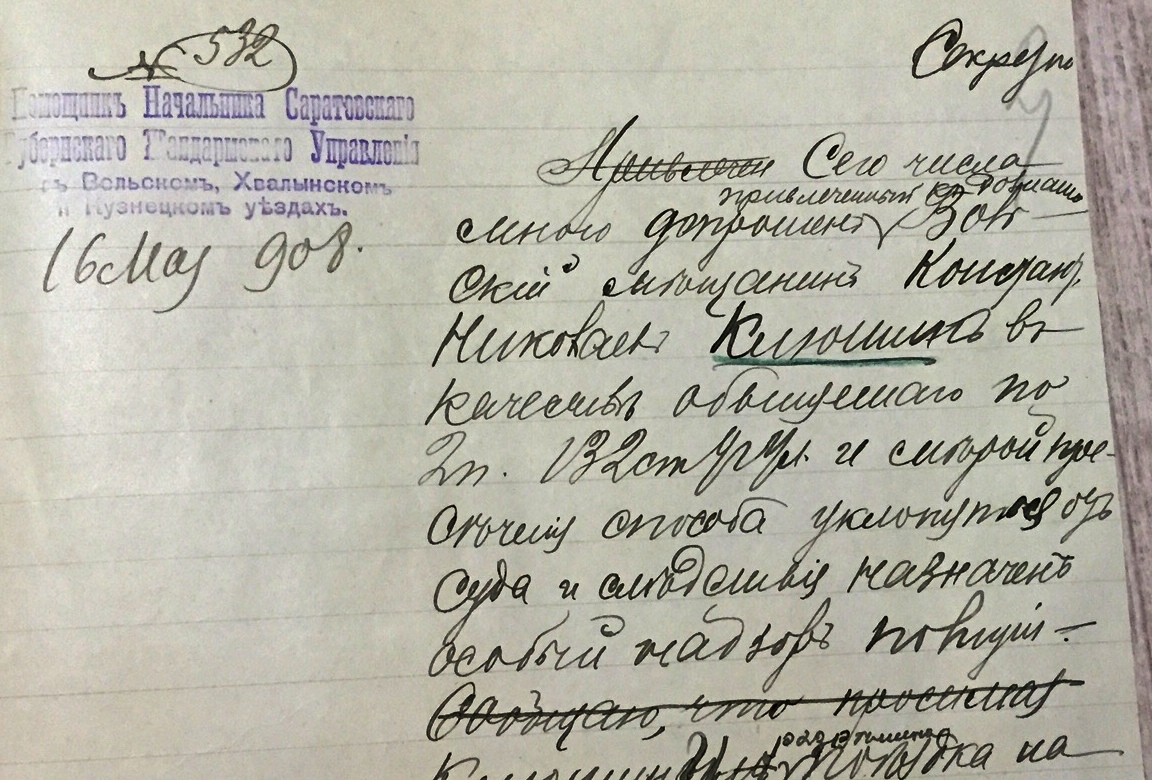 № 532
Секретно
Помощникъ Начальника Саратовскаго
Губернскаго Жандармскаго Управленія
въ Вольскомъ, Хвалынскомъ
и Кузнецкомъ уѣздахъ.
16 Мая 908.
Привлечен Сего числа
привлеченный къ дознанію
мною допрошенъ Воль
скій мѣщанинъ Констант.
Николаевъ Клюшинъ въ
качествѣ обвиняемаго по
2 п. 132 ст Уг Ул. и мѣрой пре-
сѣченія способа уклонуться отъ
суда и слѣдствія назначенъ
особый надзоръ полиціи. –
Сообщаю, что просимая
поѣздка на